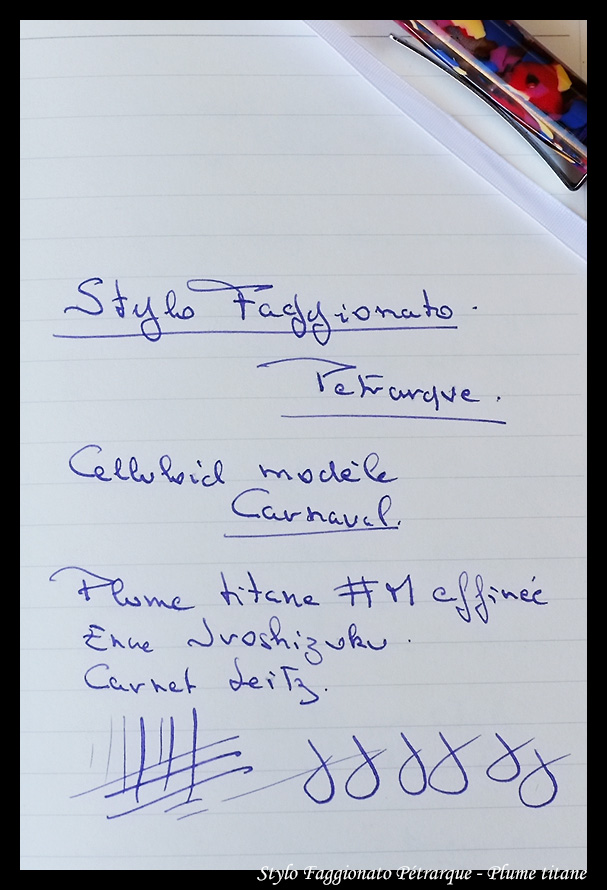 Stylo Faggionato.
Pétrarque.
Celluloid modèle
Carnaval.
Plume titane #M affinée
Encre Iroshizuku.
Carnet Leitz.
Stylo Faggionato Pétrarque - Plume titane